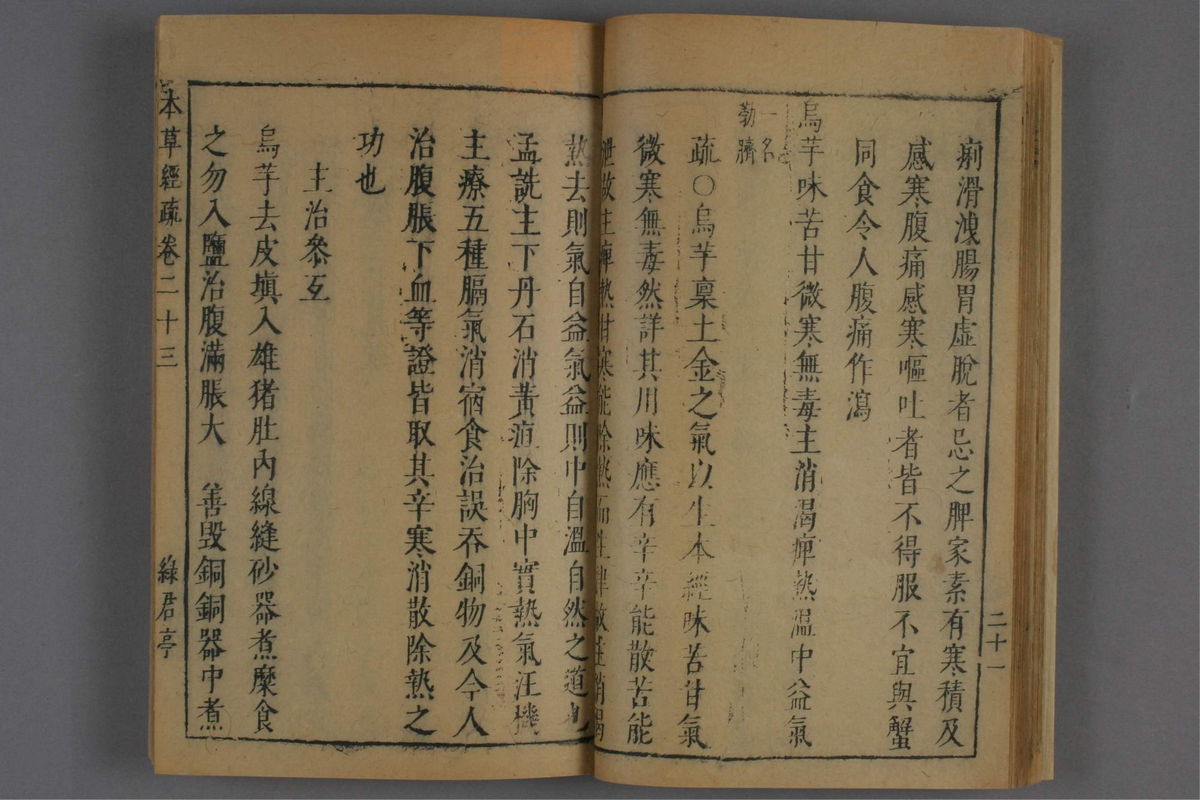 痢滑洩腸胃虛脫者忌之脾家素有寒積及
感寒腹痛感寒嘔吐者皆不得服不宜與蟹
同食令人腹痛作瀉
烏芋味苦甘微寒無毒主消渴痺熱溫中益氣
一名
葧臍
疏○烏芋稟土金之氣以生本經味苦甘氣
微寒無毒然詳其用味應有辛辛能散苦能
泄故主痺熱甘寒能除熱而生津故主消渴
熱去則氣自益氣益則中自溫自然之道也
孟詵主下丹石消黃疸除胸中實熱氣汪機
主療五種膈氣消宿食治誤吞銅物及今人
治腹脹下血等證皆取其辛寒消散除熱之
功也
主治參互
烏芋去皮填入雄猪肚內線縫砂器煮糜食
之勿入鹽治腹滿脹大 善毀銅銅器中煮
本草經疏卷二十三
綠君亭
二十一